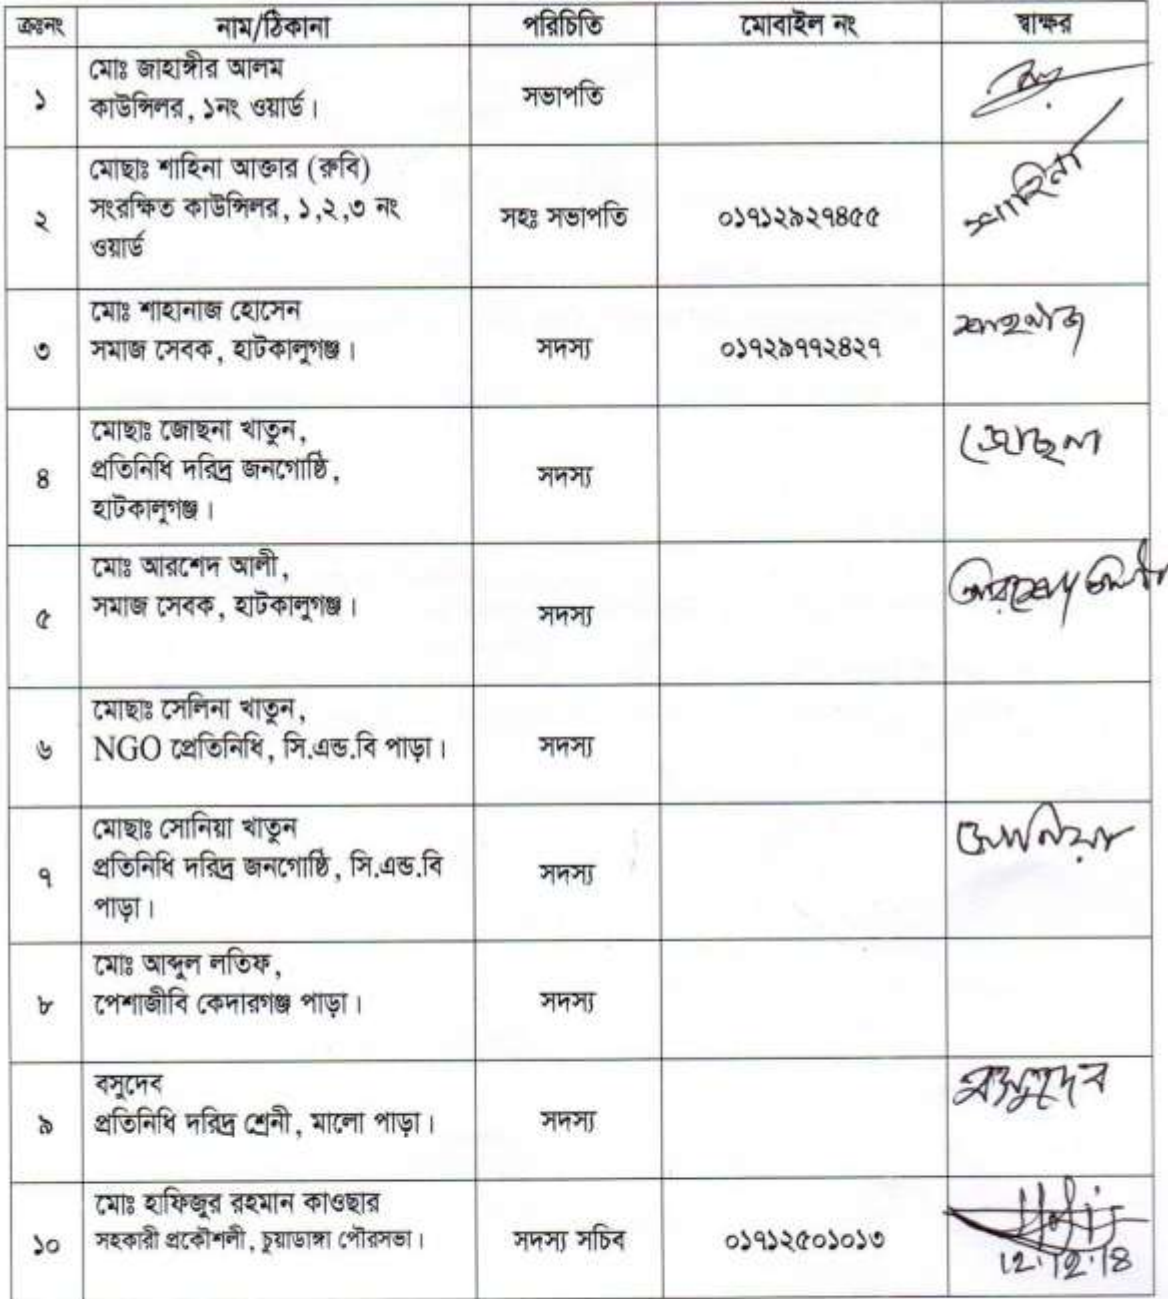 ক্রঃনং নাম/ঠিকানা পরিচিতি মোবাইল নং স্বাক্ষর
মোঃ জাহাঙ্গীর আলম
১ কাউন্সিলর, ১নং ওয়ার্ড। সভাপতি
মোছাঃ শাহিনা আক্তার (রুবি)
২ সংরক্ষিত কাউন্সিলর, ১,২,৩ নং সহঃ সভাপতি ০১৭১২৯২৭৪৫৫ শাহিনা
ওয়ার্ড
মোঃ শাহানাজ হোসেন
৩ সমাজ সেবক, হাটকালুগঞ্জ। সদস্য ০১৭২৯৭৭২৪২৭ শাহনাজ
মোছাঃ জোছনা খাতুন,
৪ প্রতিনিধি দরিদ্র জনগোষ্ঠি, সদস্য জোছনা
হাটকালুগঞ্জ।
মোঃ আরশেদ আলী,
৫ সমাজ সেবক, হাটকালুগঞ্জ। সদস্য আরশেদ আলী
মোছাঃ সেলিনা খাতুন,
৬ NGO প্রেতিনিধি, সি.এন্ড.বি পাড়া। সদস্য
মোছাঃ সোনিয়া খাতুন
৭ প্রতিনিধি দরিদ্র জনগোষ্ঠি, সি.এন্ড.বি সদস্য সোনিয়া
পাড়া।
মোঃ আব্দুল লতিফ,
৮ পেশাজীবি কেদারগঞ্জ পাড়া। সদস্য
বসুদেব
৯ প্রতিনিধি দরিদ্র শ্রেনী, মালো পাড়া। সদস্য বসুদেব
মোঃ হাফিজুর রহমান কাওছার
১০ সহকারী প্রকৌশলী, চুয়াডাঙ্গা পৌরসভা। সদস্য সচিব ০১৭১২৫০১০১৩
12.12.18